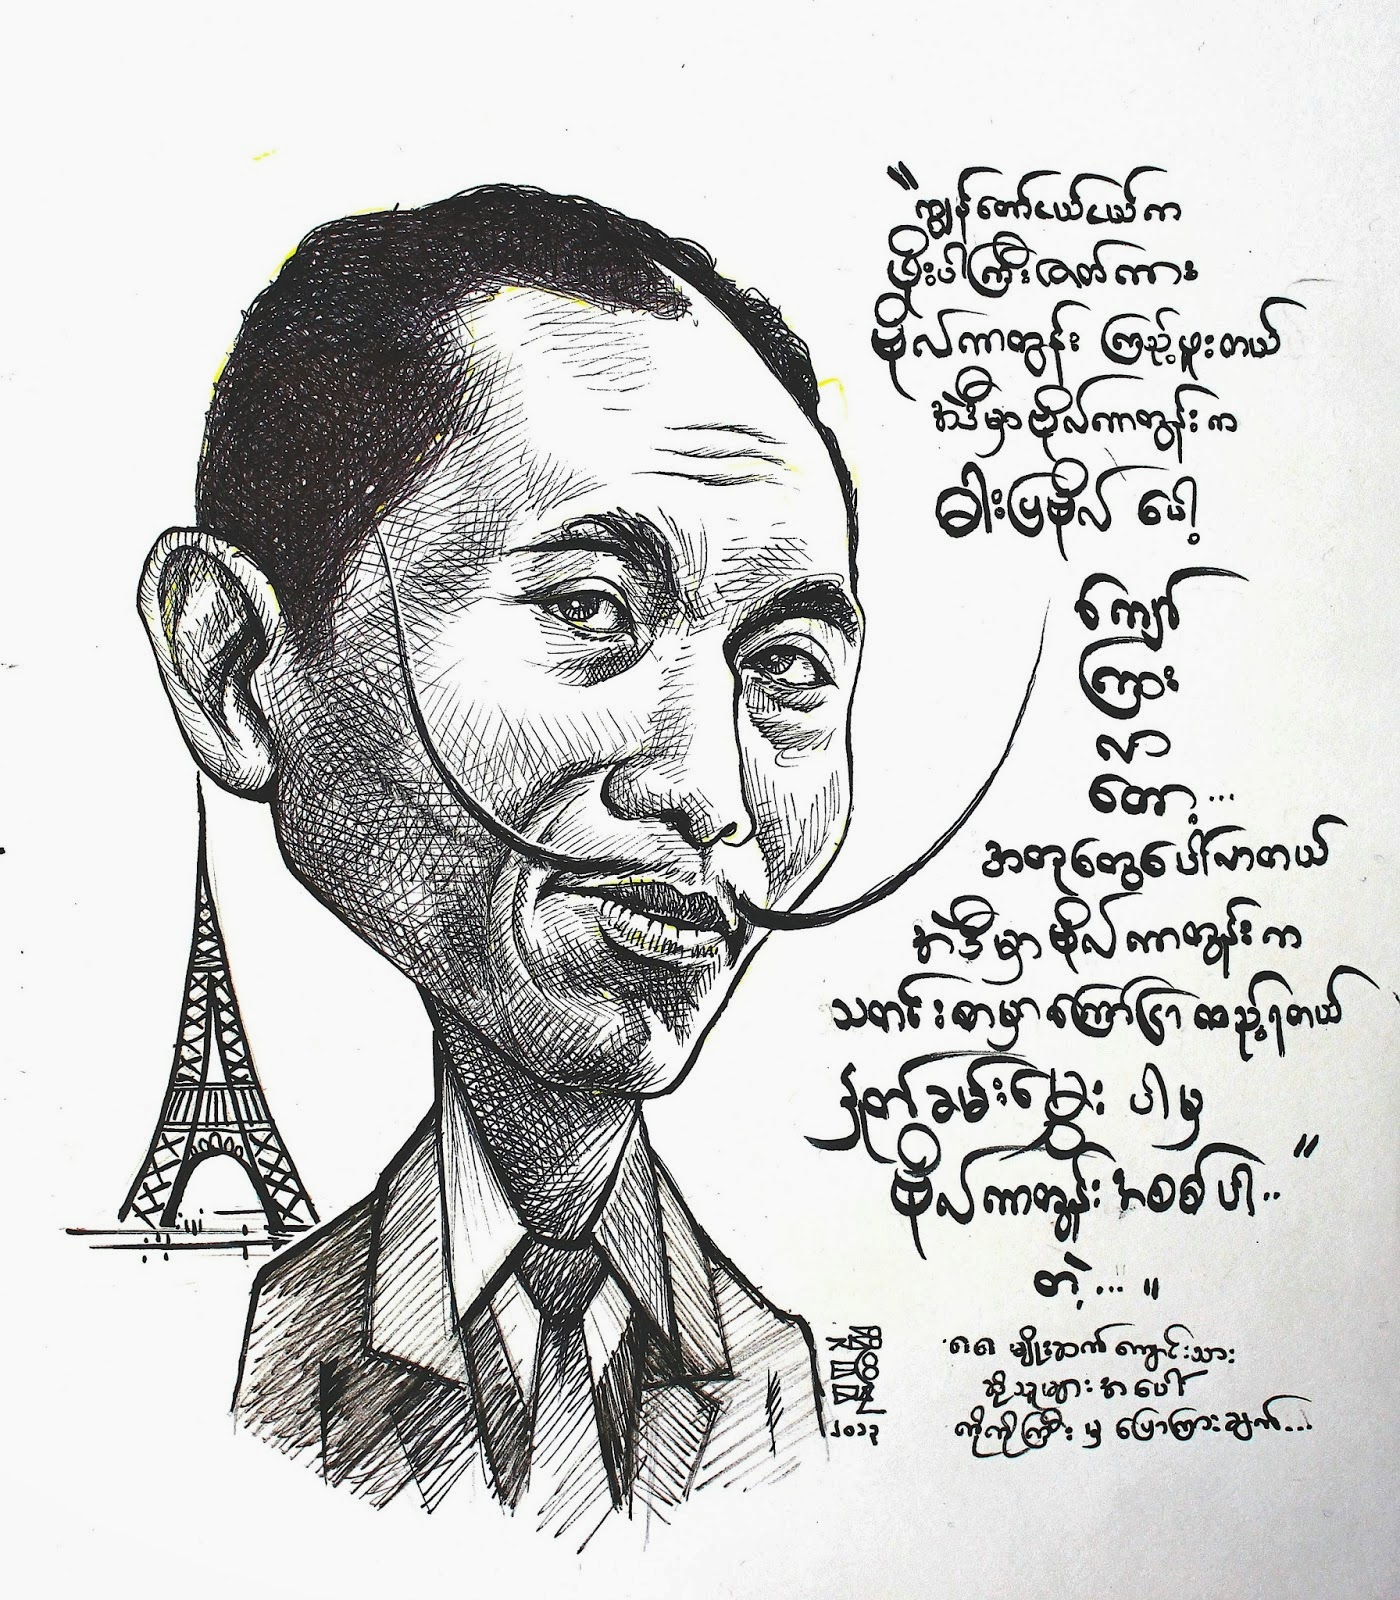 "ကျွန်တော်ငယ်ငယ်က
ဖိုးပါကြီးဇာတ်ကား
ဗိုလ်ကာတွန်း ကြည့်ဖူးတယ်
အဲဒီမှာဗိုလ်ကာတွန်းက
ဓါးပြဗိုလ် ပေါ့
ကျော်
ကြား
လာ
တော့...
အတုတွေပေါ်လာတယ်
အဲဒီမှာ ဗိုလ်ကာတွန်းက
သတင်းစာမှာ ကြော်ငြာ ထည့်ရတယ်
နှုတ်ခမ်းမွှေး ပါမှ
ဗိုလ်ကာတွန်း အစစ်ပါ.."
တဲ့...။
၈၈ မျိုးဆက် ကျောင်းသား
အတုများအပေါ်
ကိုကိုကြီး မှ ပြောကြားချက်...
၂၀၁၃